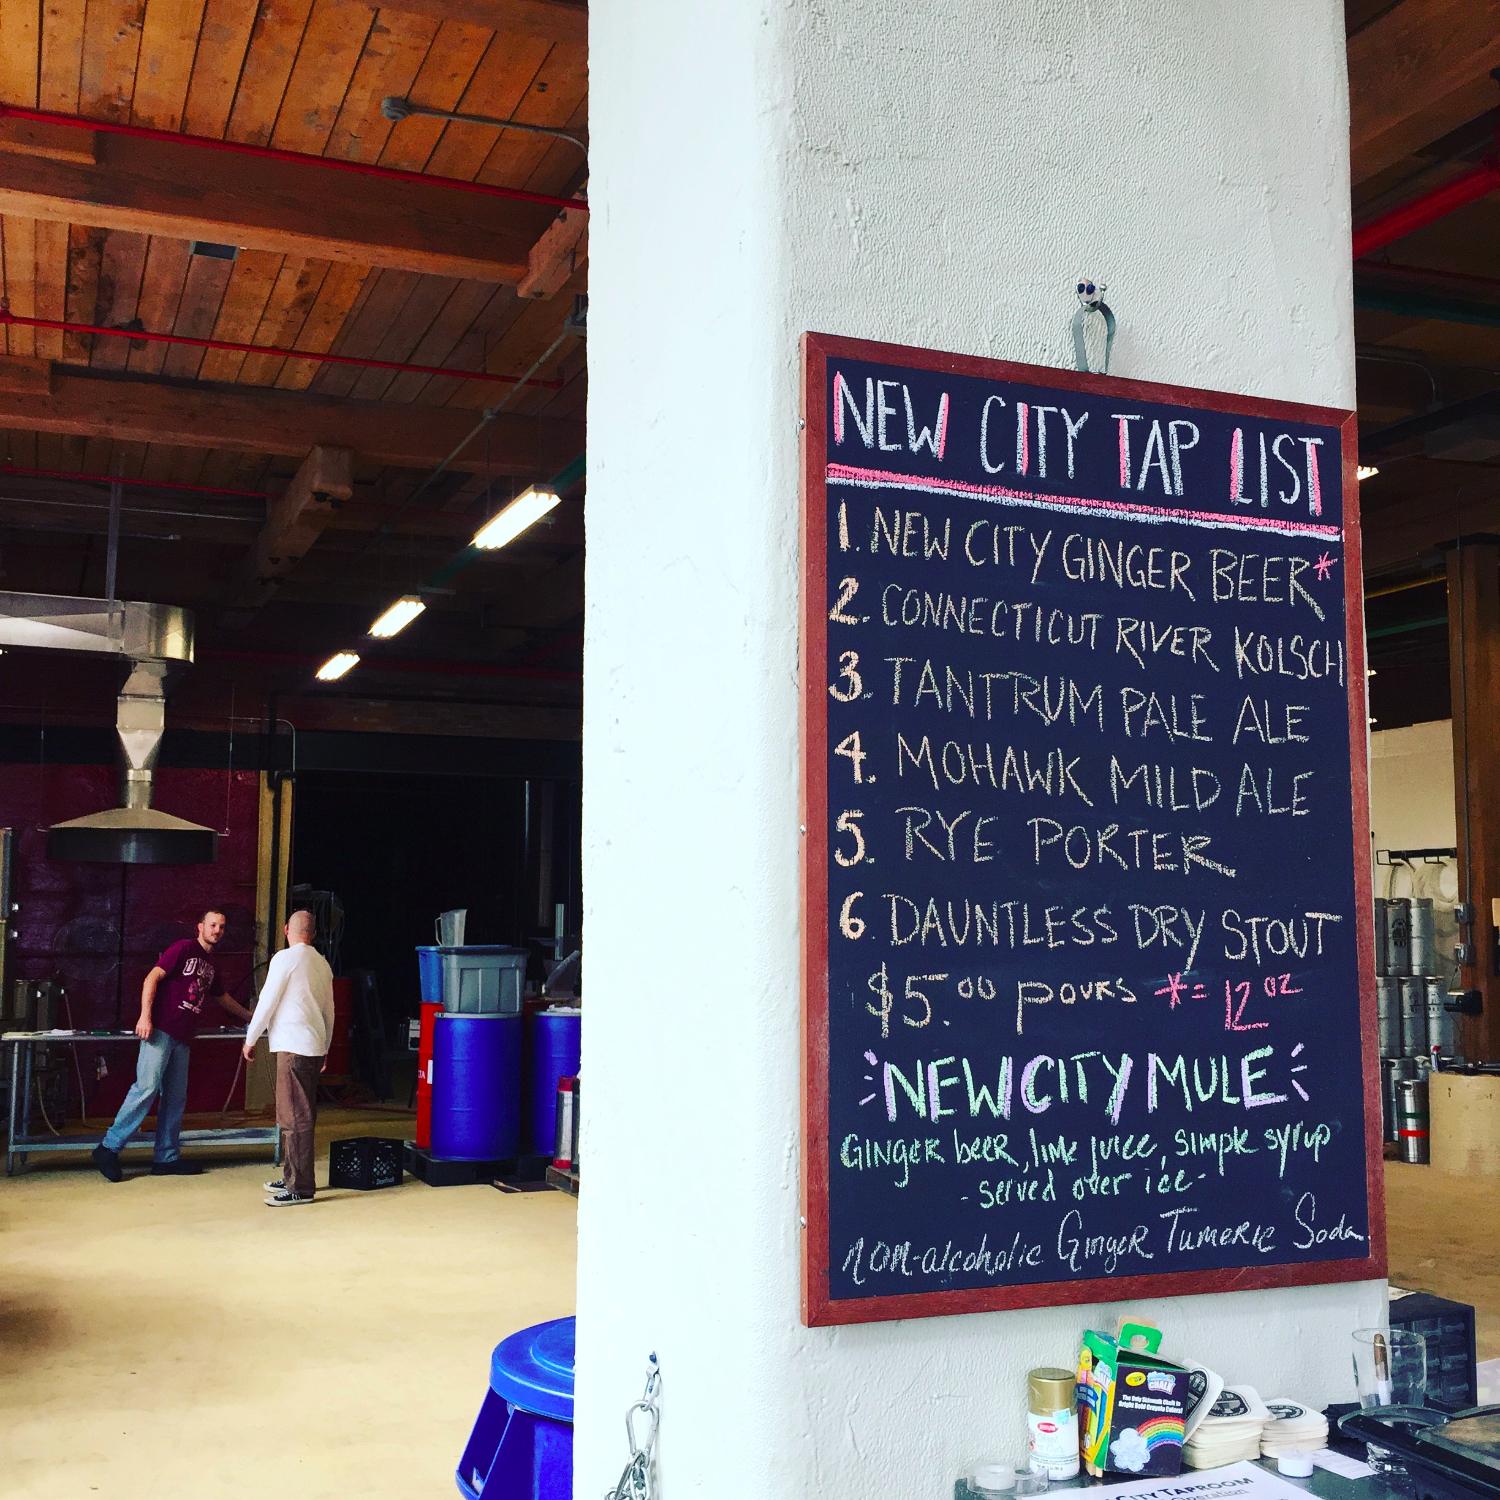 NEW CITY TAP LIST
1. NEW CITY GINGER BEER*
2. CONNECTICUT RIVER KOLSCH
3. TANTRUM PALE ALE
4. MOHAWK MILD ALE
5. RYE PORTER
6. DAUNTLESS DRY STOUT
$5.00 pours *= 12 oz
NEW CITY MULE
Ginger beer, lime juice, simple syrup
- served over ice -
non-alcoholic Ginger Tumeric Soda
CHALK
CITY TAPROOM